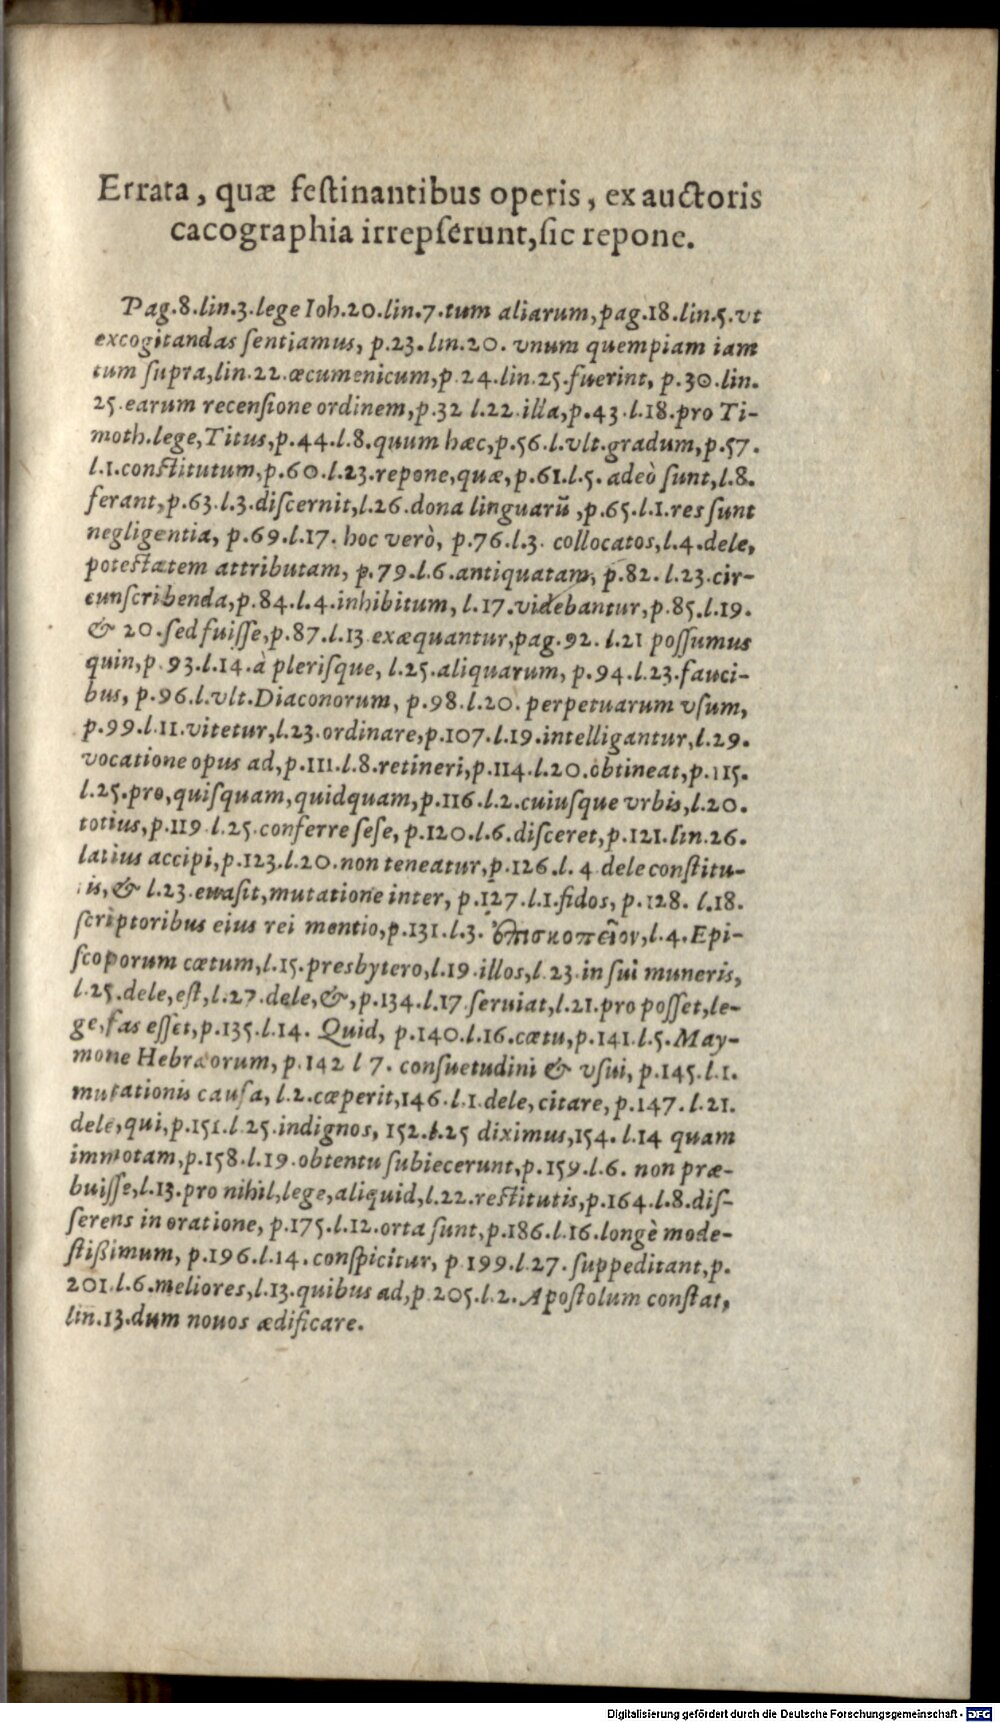 Errata, quæ festinantibus operis, ex auctoris
cacographia irrepserunt, sic repone.
Pag.8.lin.3.lege Ioh.20.lin.7.tum aliarum,pag.18.lin.5.vt
excogitandas sentiamus, p.23.lin.20. vnum quempiam iam
tum supra,lin.22.œcumenicum,p.24.lin.25.fuerint, p.30.lin.
25.earum recensione ordinem,p.32 l.22.illa,p.43.l.18.pro Ti-
moth.lege,Titus,p.44.l.8.quum hæc,p.56.l.vlt.gradum,p.57.
l.1.constitutum,p.60.l.23.repone,quæ,p.61.l.5. adeò sunt,l.8.
ferant,p.63.l.3.discernit,l.26.dona linguarū,p.65.l.1.res sunt
negligentia, p.69.l.17. hoc verò, p.76.l.3. collocatos,l.4.dele,
potestatem attributam, p.79.l.6.antiquatam, p.82. l.23.cir-
cunscribenda,p.84.l.4.inhibitum, l.17.videbantur,p.85.l.19.
& 20.sed fuisse,p.87.l.13 exæquantur,pag.92. l.21 possumus
quin,p.93.l.14.à plerisque, l.25.aliquarum, p.94.l.23.fauci-
bus, p.96.l.vlt.Diaconorum, p.98.l.20. perpetuarum vsum,
p.99.l.11.vitetur,l.23.ordinare,p.107.l.19.intelligantur,l.29.
vocatione opus ad,p.111.l.8.retineri,p.114.l.20.obtineat,p.115.
l.25.pro,quisquam,quidquam,p.116.l.2.cuiusque vrbis,l.20.
totius,p.119.l.25.conferre sese, p.120.l.6.disceret,p.121.lin.26.
latius accipi,p.123.l.20.non teneatur,p.126.l.4 dele constitu-
is,& l.23.euasit,mutatione inter, p.127.l.1.fidos, p.128. l.18.
scriptoribus eius rei mentio,p.131.l.3. ἐπισκοπεῖον,l.4.Epi-
scoporum cœtum,l.15.presbytero,l.19.illos,l.23.in sui muneris,
l.25.dele,est,l.27.dele,&,p.134.l.17.seruiat,l.21.pro posset,le-
ge,fas esset,p.135.l.14. Quid, p.140.l.16.cœtu,p.141.l.5.May-
mone Hebræorum, p.142 l 7. consuetudini & vsui, p.145.l.1.
mutationis causa, l.2.cæperit,146.l.1.dele,citare, p.147.l.21.
dele,qui,p.151.l.25.indignos, 152.l.25 diximus,154. l.14 quam
immotam,p.158.l.19.obtentu subiecerunt,p.159.l.6. non præ-
buisse,l.13.pro nihil,lege,aliquid,l.22.restitutis,p.164.l.8.dis-
serens in oratione, p.175.l.12.orta sunt,p.186.l.16.longè mode-
stißimum, p.196.l.14.conspicitur, p 199.l.27.suppeditant,p.
201.l.6.meliores,l.13.quibus ad,p.205.l.2.Apostolum constat,
lin.13.dum nouos ædificare.
Digitalisierung gefördert durch die Deutsche Forschungsgemeinschaft - DFG